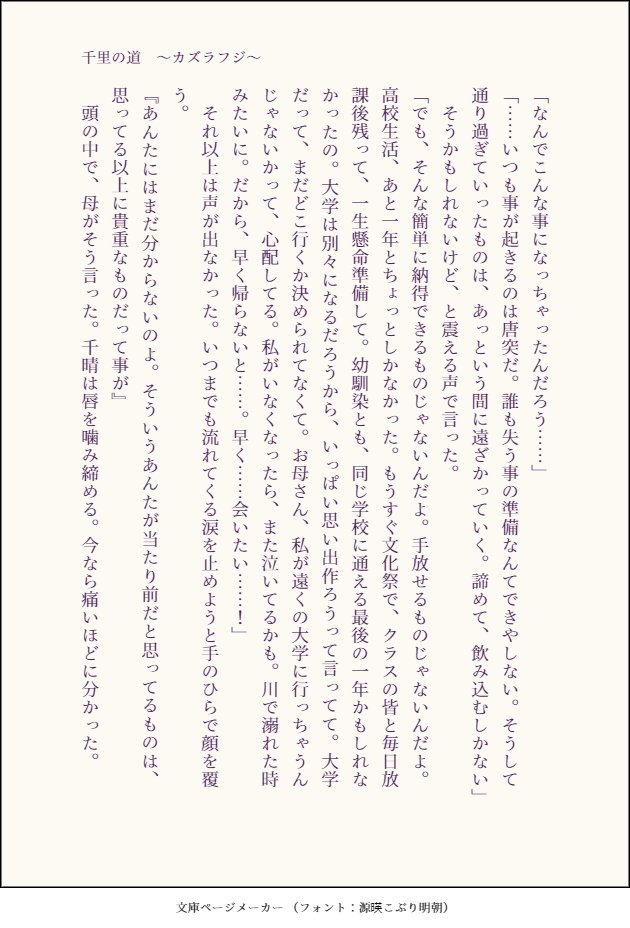 千里の道　～カズラフジ～
「なんでこんな事になっちゃったんだろう……」
「……いつも事が起きるのは唐突だ。誰も失う事の準備なんてできやしない。そうして
通り過ぎていったものは、あっという間に遠ざかっていく。諦めて、飲み込むしかない」
　そうかもしれないけど、と震える声で言った。
「でも、そんな簡単に納得できるものじゃないんだよ。手放せるものじゃないんだよ。
高校生活、あと一年とちょっとしかなかった。もうすぐ文化祭で、クラスの皆と毎日放
課後残って、一生懸命準備して。幼馴染とも、同じ学校に通える最後の一年かもしれな
かったの。大学は別々になるだろうから、いっぱい思い出作ろうって言ってて。大学
だって、まだどこ行くか決められてなくて。お母さん、私が遠くの大学に行っちゃうん
じゃないかって、心配してる。私がいなくなったら、また泣いてるかも。川で溺れた時
みたいに。だから、早く帰らないと……。早く……会いたい……！」
　それ以上は声が出なかった。いつまでも流れてくる涙を止めようと手のひらで顔を覆
う。
『あんたにはまだ分からないのよ。そういうあんたが当たり前だと思ってるものは、
思ってる以上に貴重なものだって事が』
　頭の中で、母がそう言った。千晴は唇を噛み締める。今なら痛いほどに分かった。
文庫ページメーカー （フォント：源暎こぶり明朝）